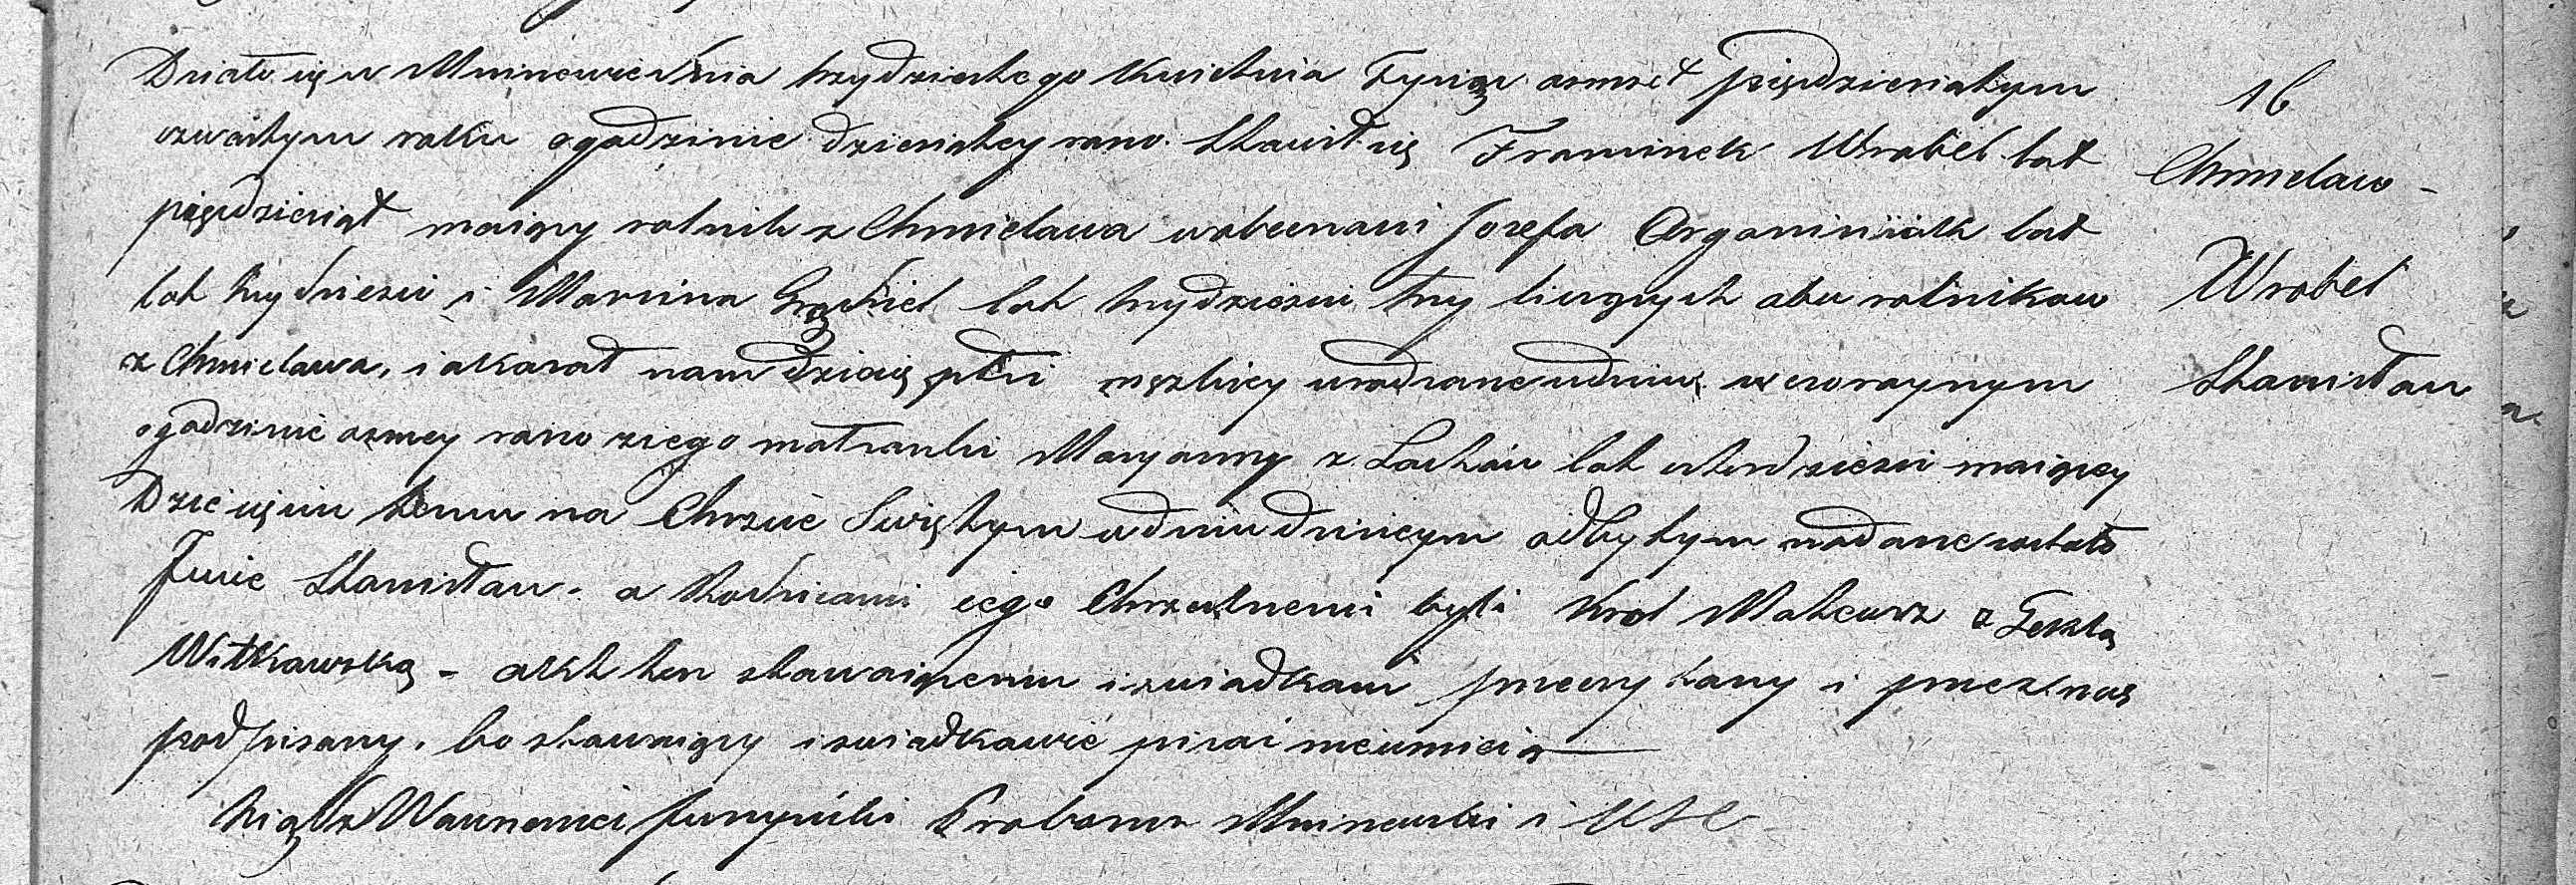 Działo się w Mninowie dnia trzydziestego Kwietnia Tysiąc osmset pięćdziesiątym
czwartym roku o godzinie dziesiątey rano. Stawił się Franciszek Wrobel lat
pięćdziesiąt maiący rolnik z Chmielowa w obecności Jozefa lat
lat trydzieści i Marcina lat trydzieści try liczących obu rolnikow
z Chmielowa, i okazał nam dziecię płci męzkiey urodzone w dniu wczorayszym
o godzinie osmey rano z iego małżonki Maryanny z lat czterdzieści maiącey
Dziecięciu temu na Chrzcie Swiętym w dniu dzisieyszym odbytym nadane zostało
Imie Stanisław. a Rodzicami iego Chrzestnemi byli Krol Mateusz z Teklą
Witkowską - akt ten stawaiącemu i swiadkam przeczytany i przez nas
podpisany. bo stawaiący i swiadkowie pisac nieumieią
Xiądz Proboszcz i USC
16
Chmielow -
Wrobel
Stanisław